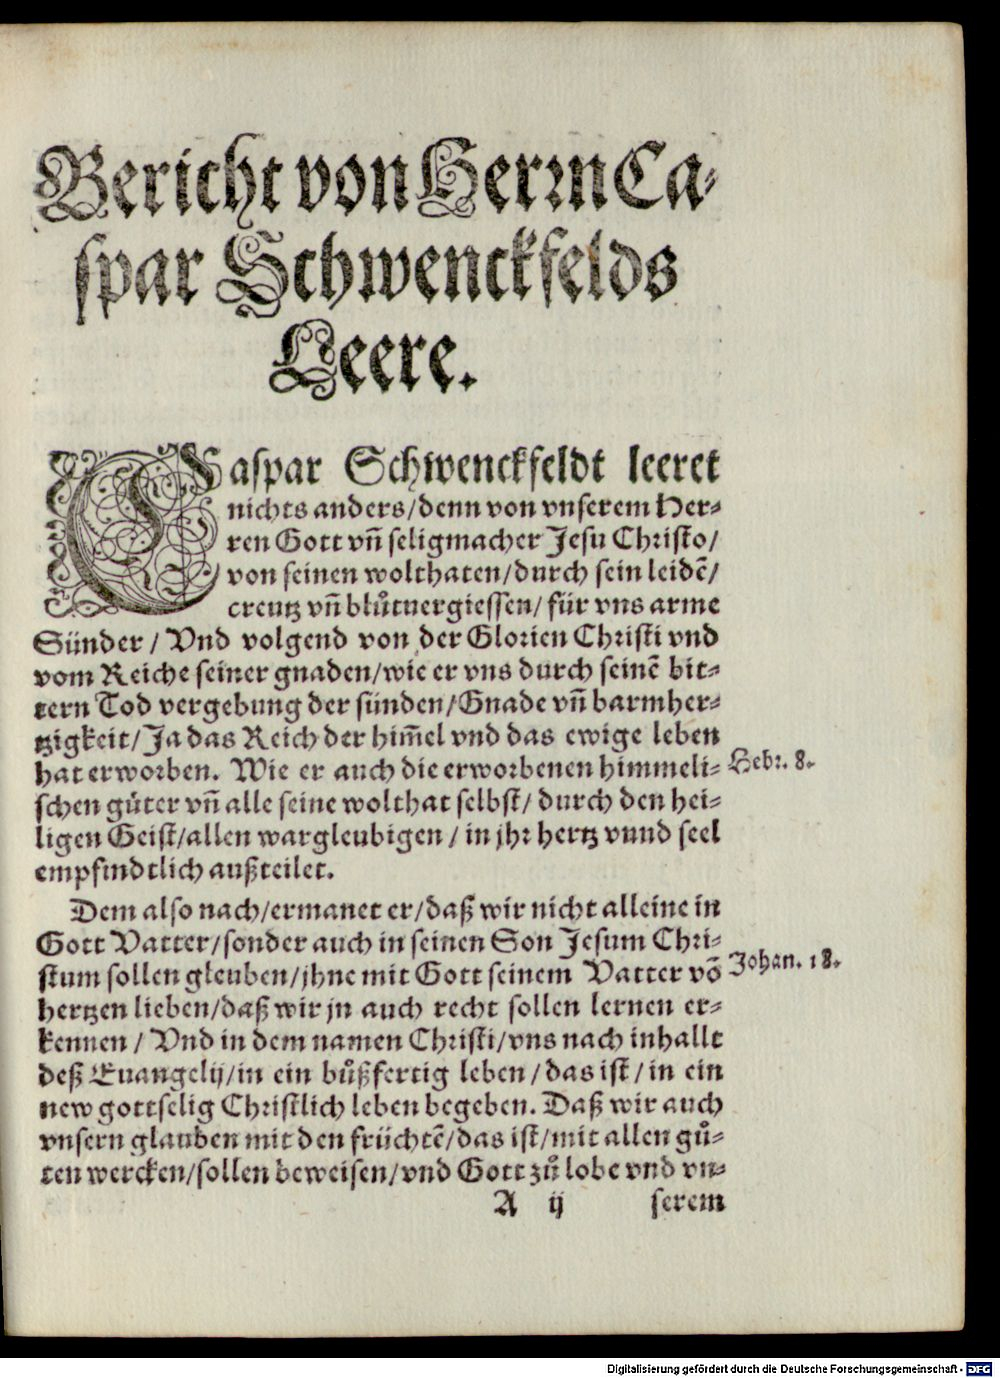 Bericht von Herrn Ca-
spar Schwenckfelds
Leere.
Caspar Schwenckfeldt leeret
nichts anders/denn von vnserem Her-
ren Gott vñ seligmacher Jesu Christo/
von seinen wolthaten/durch sein leidē/
creutz vñ blůtuergiessen/für vns arme
Sünder/Vnd volgend von der Glorien Christi vnd
vom Reiche seiner gnaden/wie er vns durch seinē bit-
tern Tod vergebung der sünden/Gnade vñ barmher-
tzigkeit/Ja das Reich der him̃el vnd das ewige leben
hat erworben. Wie er auch die erworbenen himmeli-
Hebr. 8.
schen gůter vñ alle seine wolthat selbst/durch den hei-
ligen Geist/allen wargleubigen/in jhr hertz vnnd seel
empfindtlich außteilet.
Dem also nach/ermanet er/daß wir nicht alleine in
Gott Vatter/sonder auch in seinen Son Jesum Chri-
stum sollen gleuben/jhne mit Gott seinem Vatter vō
Johan. 18.
hertzen lieben/daß wir jn auch recht sollen lernen er-
kennen/Vnd in dem namen Christi/vns nach inhallt
deß Euangelij/in ein bůßfertig leben/das ist/in ein
new gottselig Christlich leben begeben. Daß wir auch
vnsern glauben mit den früchtē/das ist/mit allen gů-
ten wercken/sollen beweisen/vnd Gott zů lobe vnd vn-
A ij serem
Digitalisierung gefördert durch die Deutsche Forschungsgemeinschaft - DFG